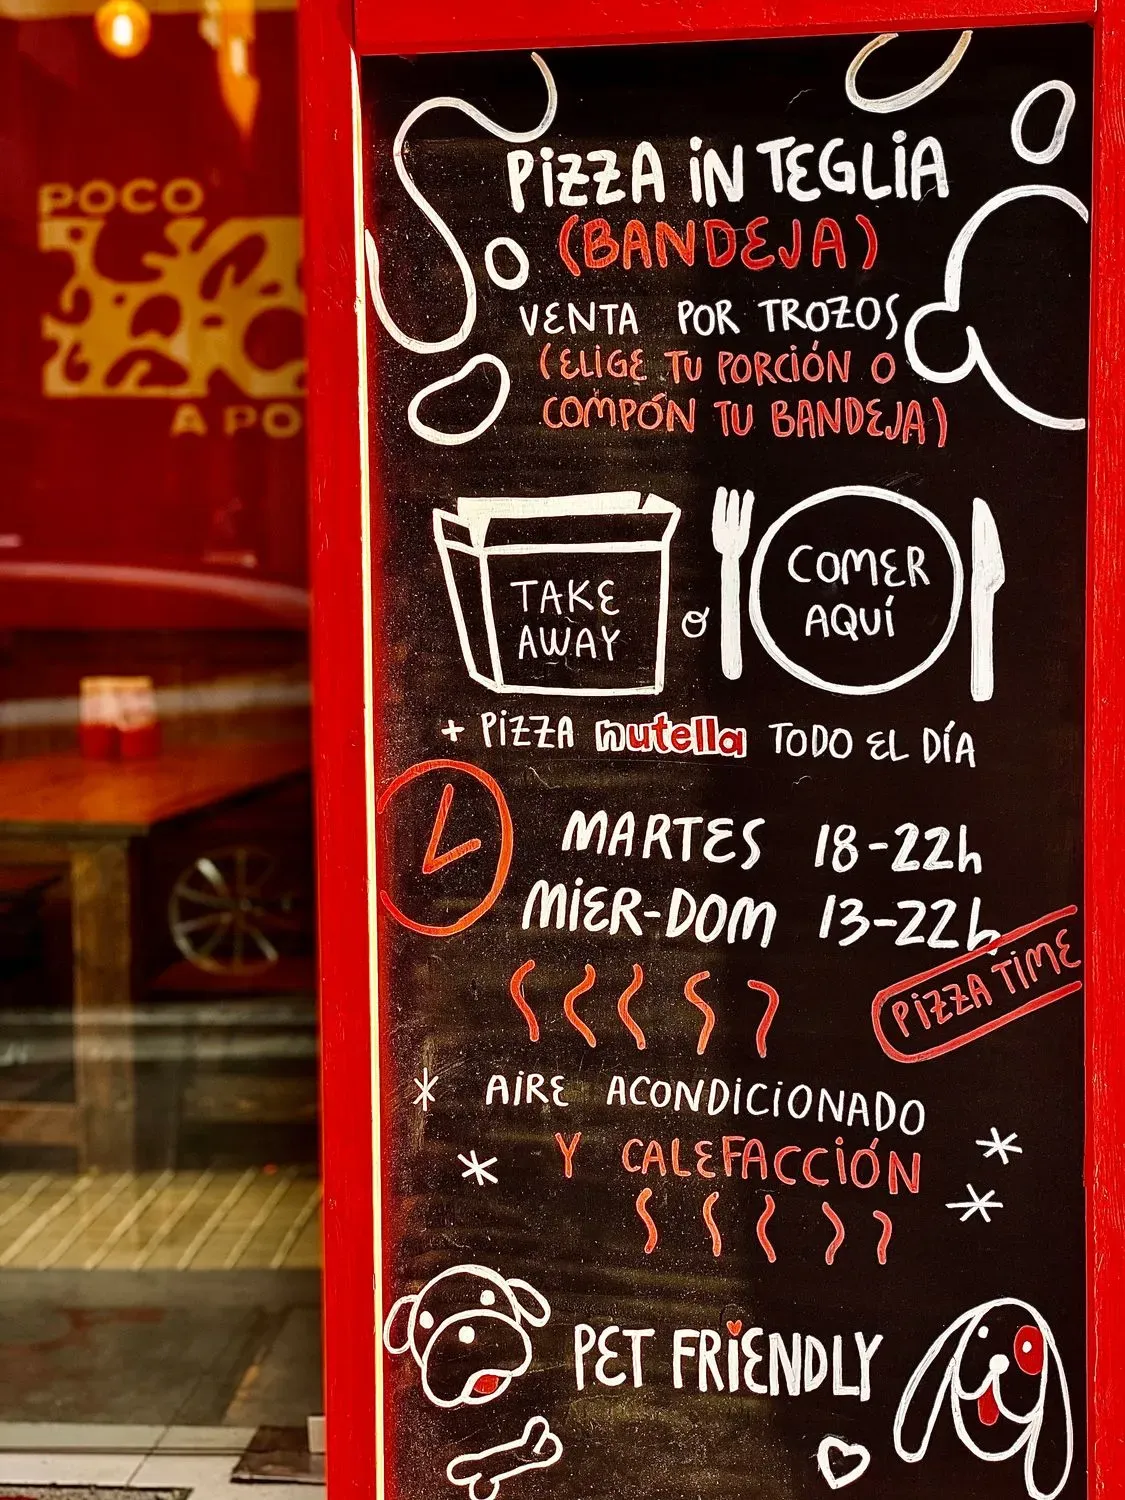 POCO
A PO
PIZZA IN TEGLIA
(BANDEJA)
VENTA POR TROZOS
(ELIGE TU PORCIÓN O
COMPÓN TU BANDEJA)
TAKE
AWAY
o
COMER
AQUÍ
+ PIZZA nutella TODO EL DÍA
MARTES 18-22h
MIER-DOM 13-22h
PIZZA TIME
AIRE ACONDICIONADO
Y CALEFACCIÓN
PET FRIENDLY